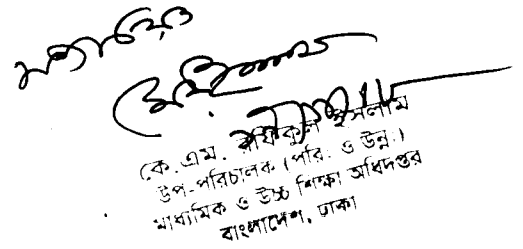 সত্যায়িত
কে.এম. রফিকুল ইসলাম
উপ-পরিচালক (পরি: ও উন্ন:)
মাধ্যমিক ও উচ্চ শিক্ষা অধিদপ্তর
বাংলাদেশ, ঢাকা